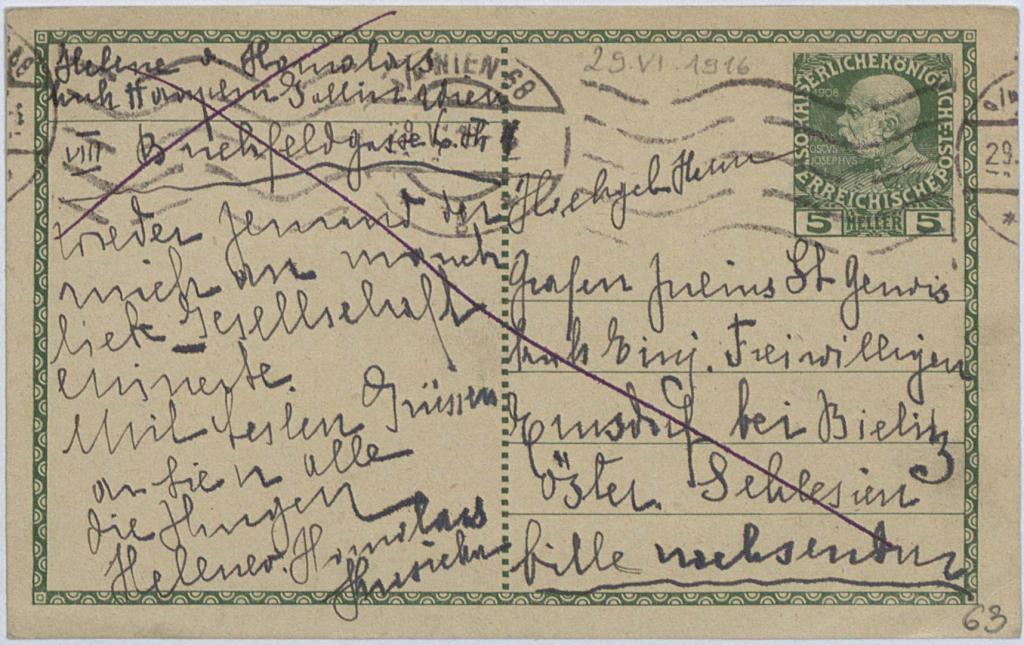 Helene v. Homolacs
VIII Buchfeldgasse 6. Th
wieder jemand der
mich an manch
liebe Gesellschaft
erinnerte.
Mit besten Grüssen
an Sie u alle
die Ihrigen
Helene v. Homolacs
WIEN 68
29.VI.1916
KAISERLICHE KÖNIGLICHE
ÖSTERREICHISCHE POST
1908
JOSEPHVS
5 HELLER 5
29.
Hochgeb Herrn
Grafen Julius St Genois
Einj. Freiwilligen
bei Bielitz
Öster. Schlesien
bitte nachsenden
63